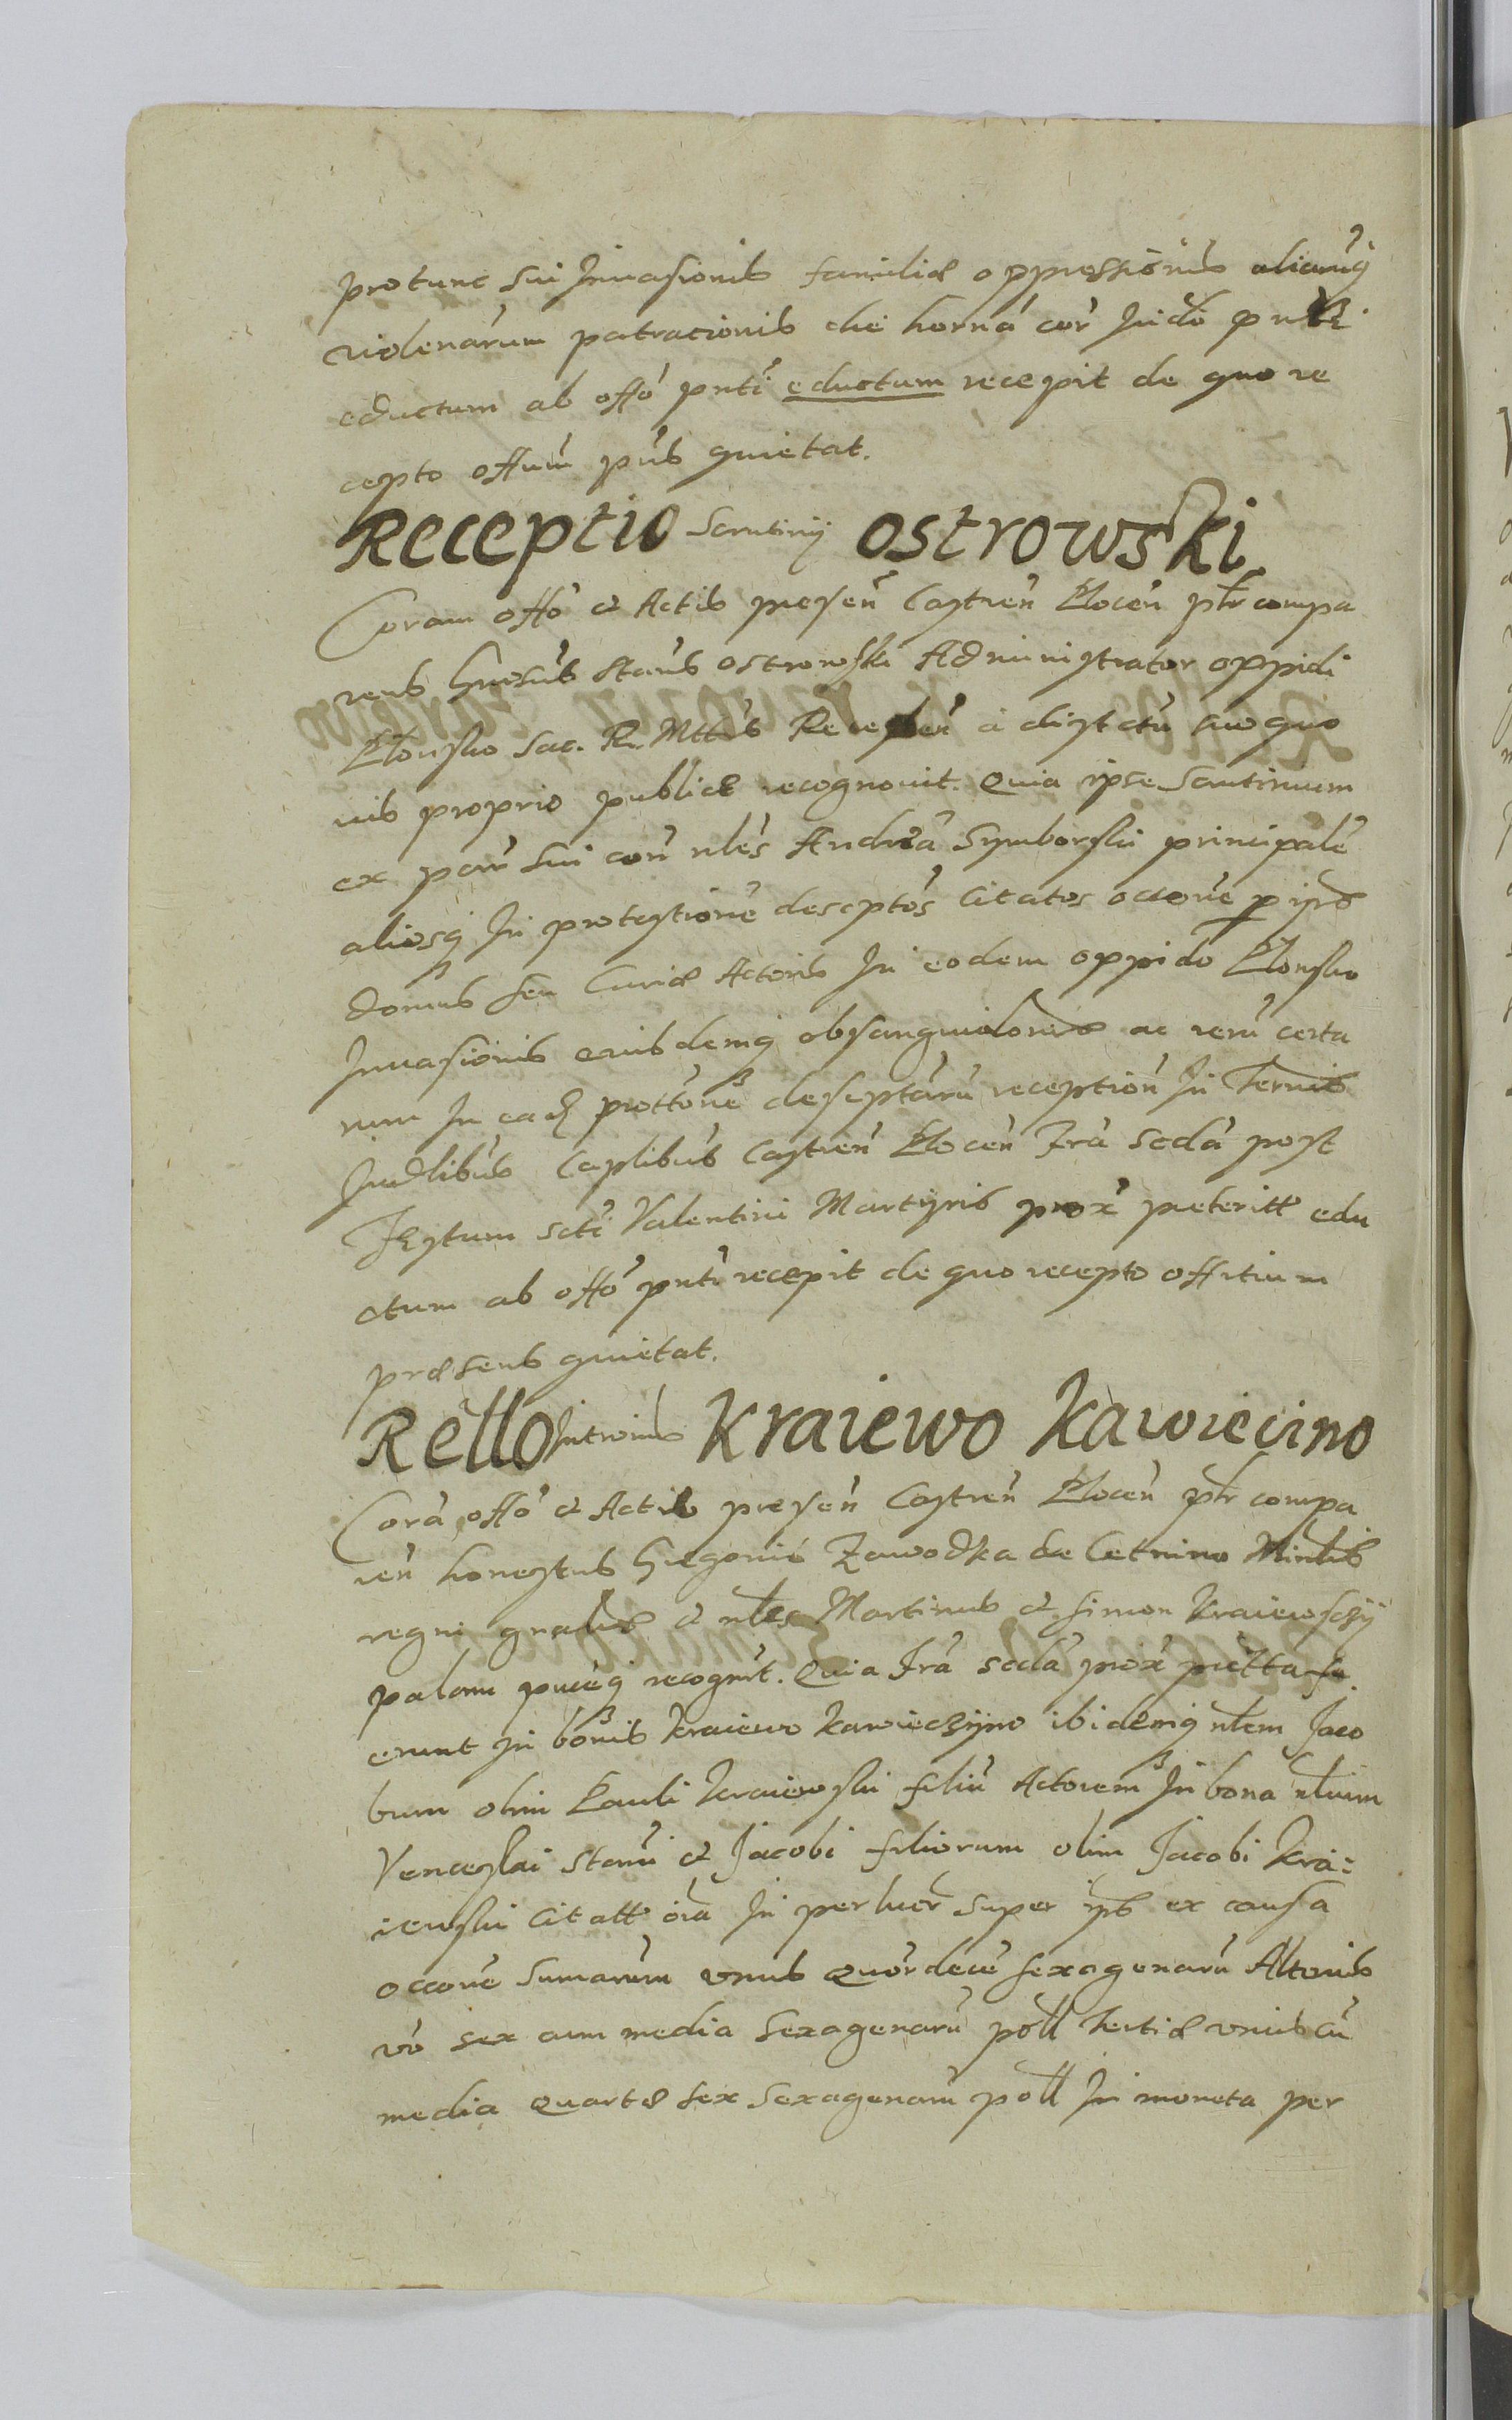 protunc sui Inuasionis familiæ oppressionis aliarumq
violenarum patracionis die horna cor Iudo pnti
eductum ab offo pnti eductum recepit de quo re
cepto offum pns quietat.
Receptio Scrutinij Ostrowski
Coram offo et Actis presen Castren Plocen ptr compa
rens Gnosus Stans Ostrowski Administrator oppidi
Plonsko Sac. R. Mttis a distctu suo quo
uis proprio publicæ recognouit. Quia ipse Scrutinium
ex par sui con nles Andrea Symborski principale
aliosq In protestione descptos Citatos occone
domus seu Curiæ Actoris In eodem oppido Plonsko
Inuasionis eiusdemq ac reru certa
rum In ead prottone descptaru reception In Termis
Judlibus Caplibus Castren Plocen Fra scda post
Festum scti Valentini Martyris prox preteritt edu
ctum ab offo pnti recepit de quo recepto offitium
præsens quietat.
Rello Intromis Kraiewo Kawiecino
Cora offo et Actis presen Castren Plocen ptr compa
ren honestus Gregorius Zawodka de Cetnino Mintlis
regni gnalis et nles Martinus et Simon Kraiewsczij
palam puceq recognrt. Quia Fra scda prox pretta fu
erunt In bonis Kraiewo Kawieczyno ibidemq nlem Jaco
bum olim Pauli Kraiewski filiu Actorem In bona nlium
Venceslai Stani et Jacobi filiorum olim Jacobi Kra:
iewski Citatt oia In perlucr super ipsis ex causa
occone sumarum vnius Quordece sexagenaru Alterius
vo sex cum media Sexagenaru poll tertiæ vnius cu
media Quartæ sex Sexagenaru poll In moneta per